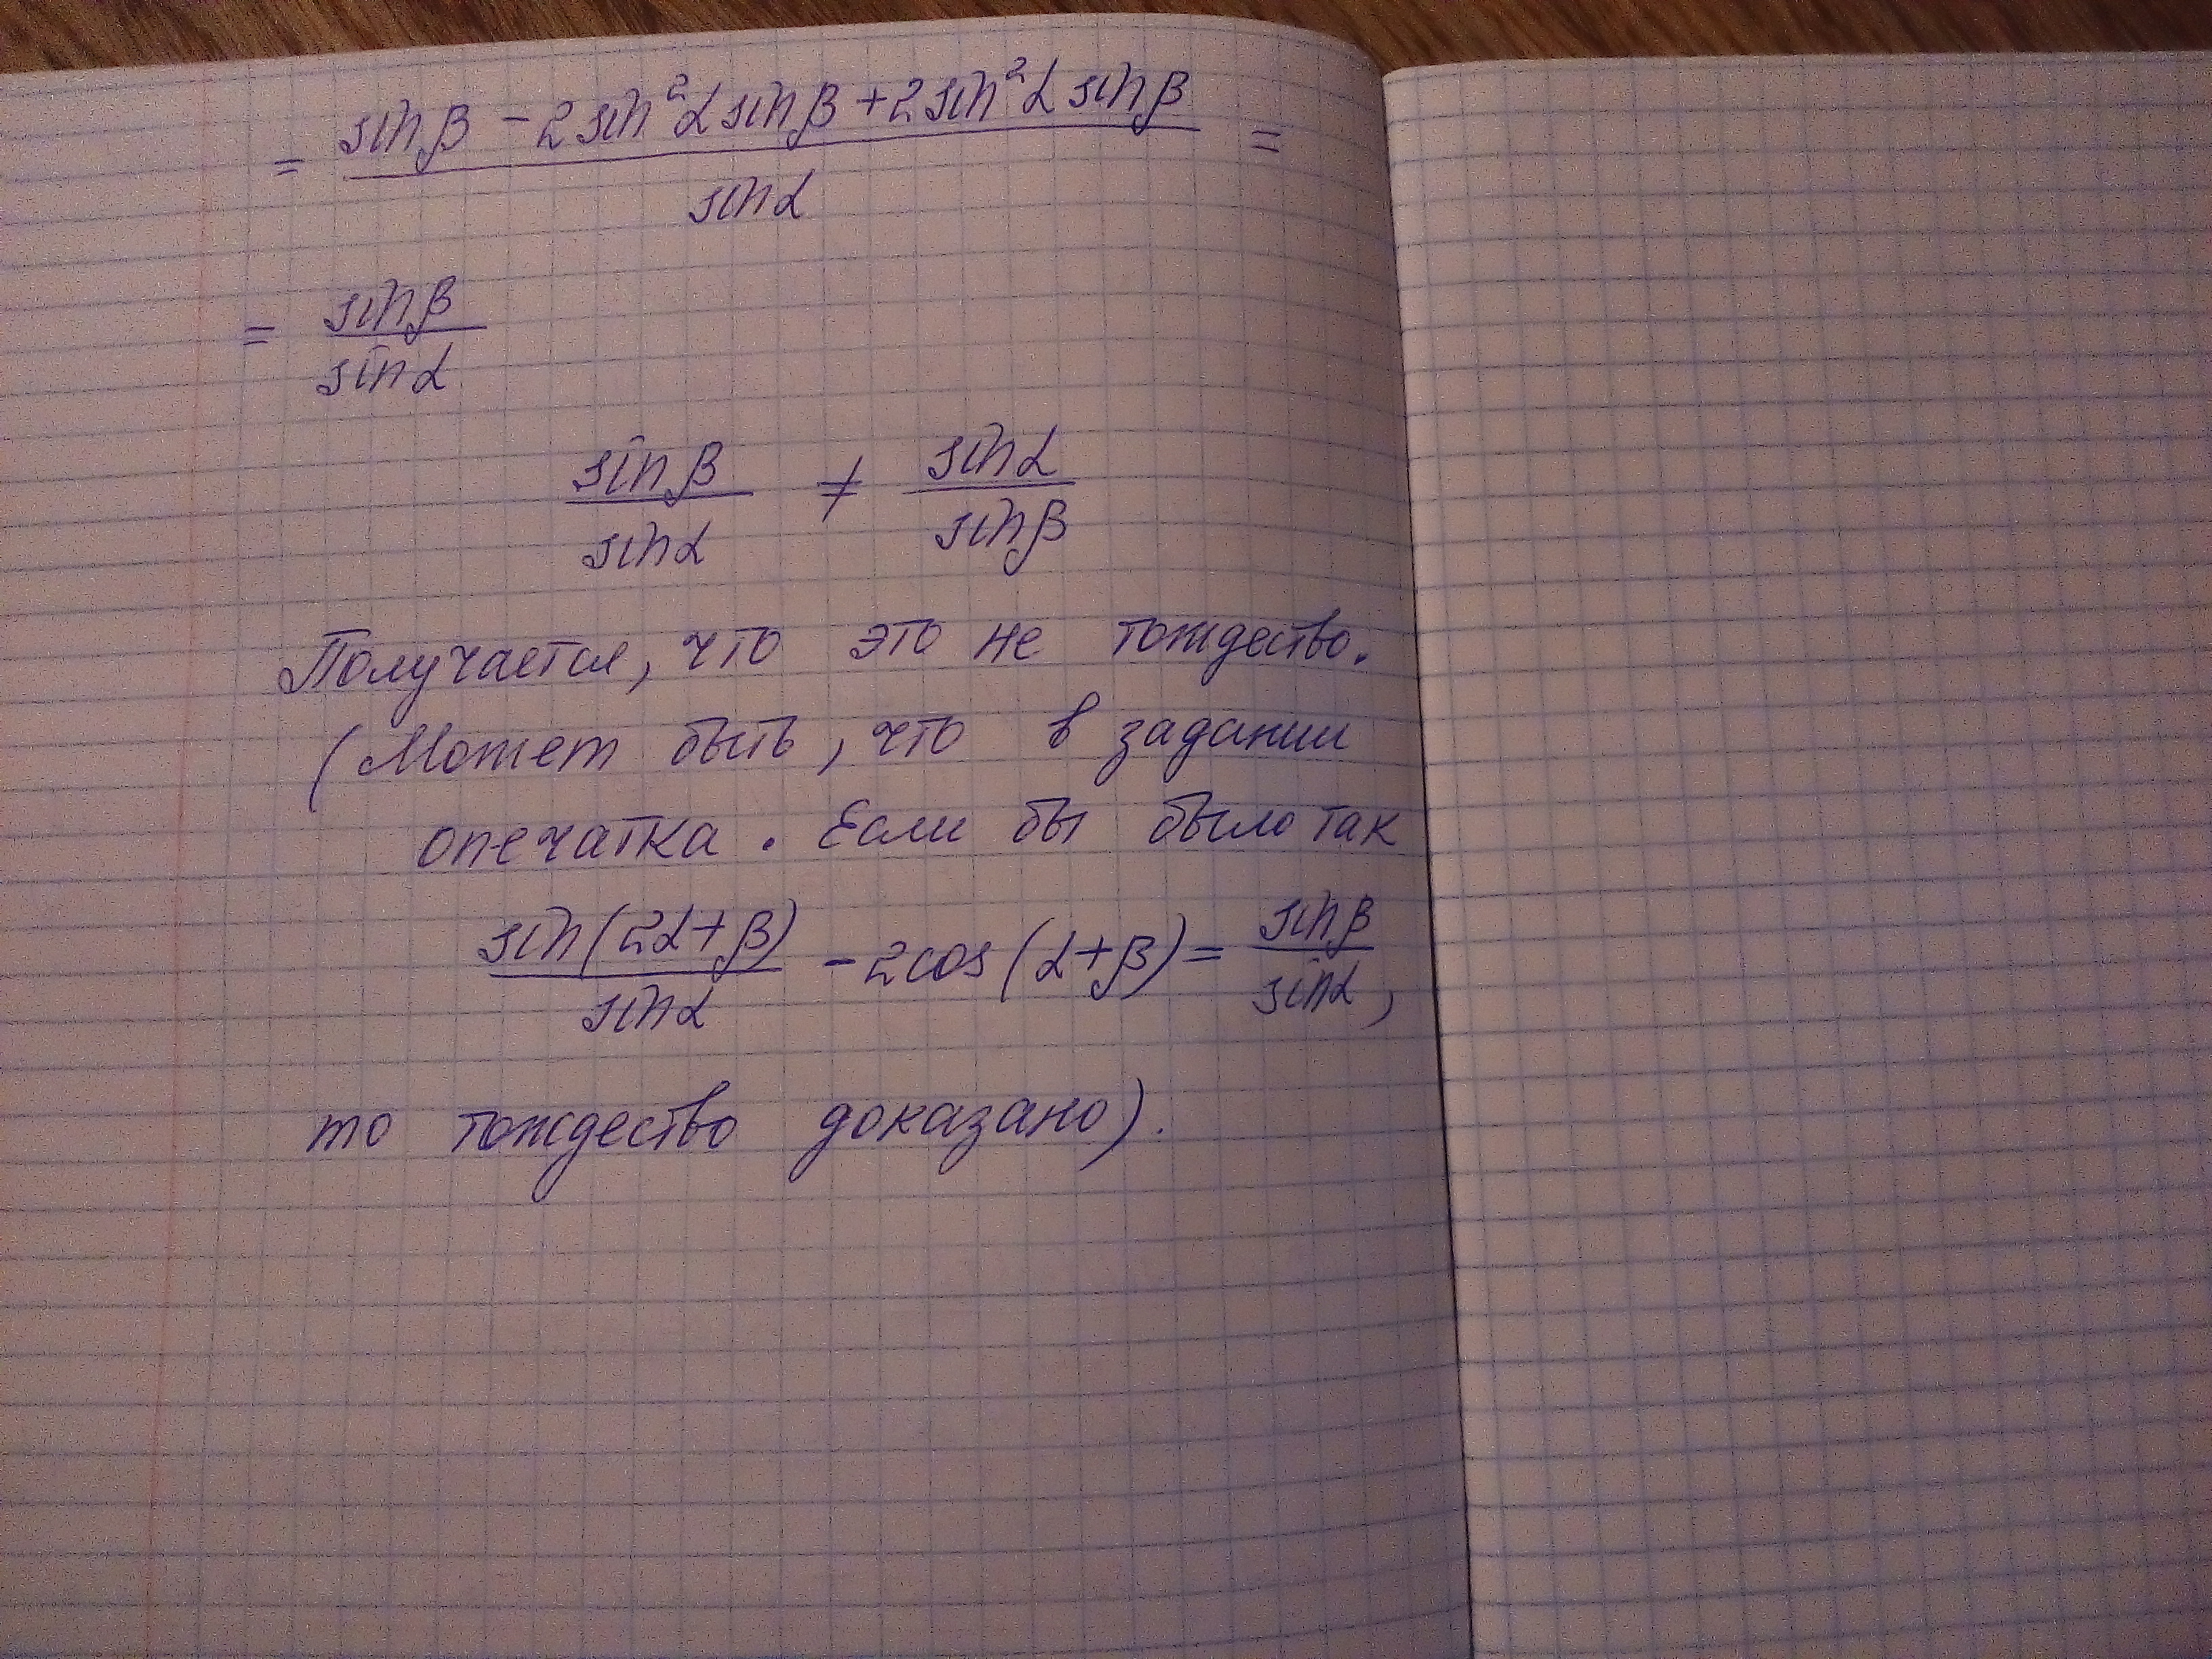 = (sin β − 2 sin²α sin β + 2 sin²α sin β) / sin α =
= sin β / sin α
sin β / sin α ≠ sin α / sin β
Получается, что это не тождество.
(Может быть, что в задании
опечатка. Если бы было так
sin(2α+β) / sin α − 2cos(α+β) = sin β / sin α,
то тождество доказано).